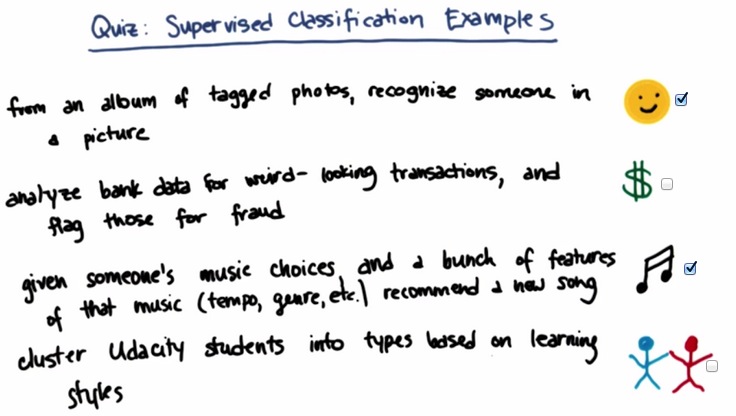 Quiz: Supervised Classification Examples
from an album of tagged photos, recognize someone in
a picture
analyze bank data for weird-looking transactions, and
flag those for fraud
given someone's music choices, and a bunch of features
of that music (tempo, genre, etc.) recommend a new song
cluster Udacity students into types based on learning
styles